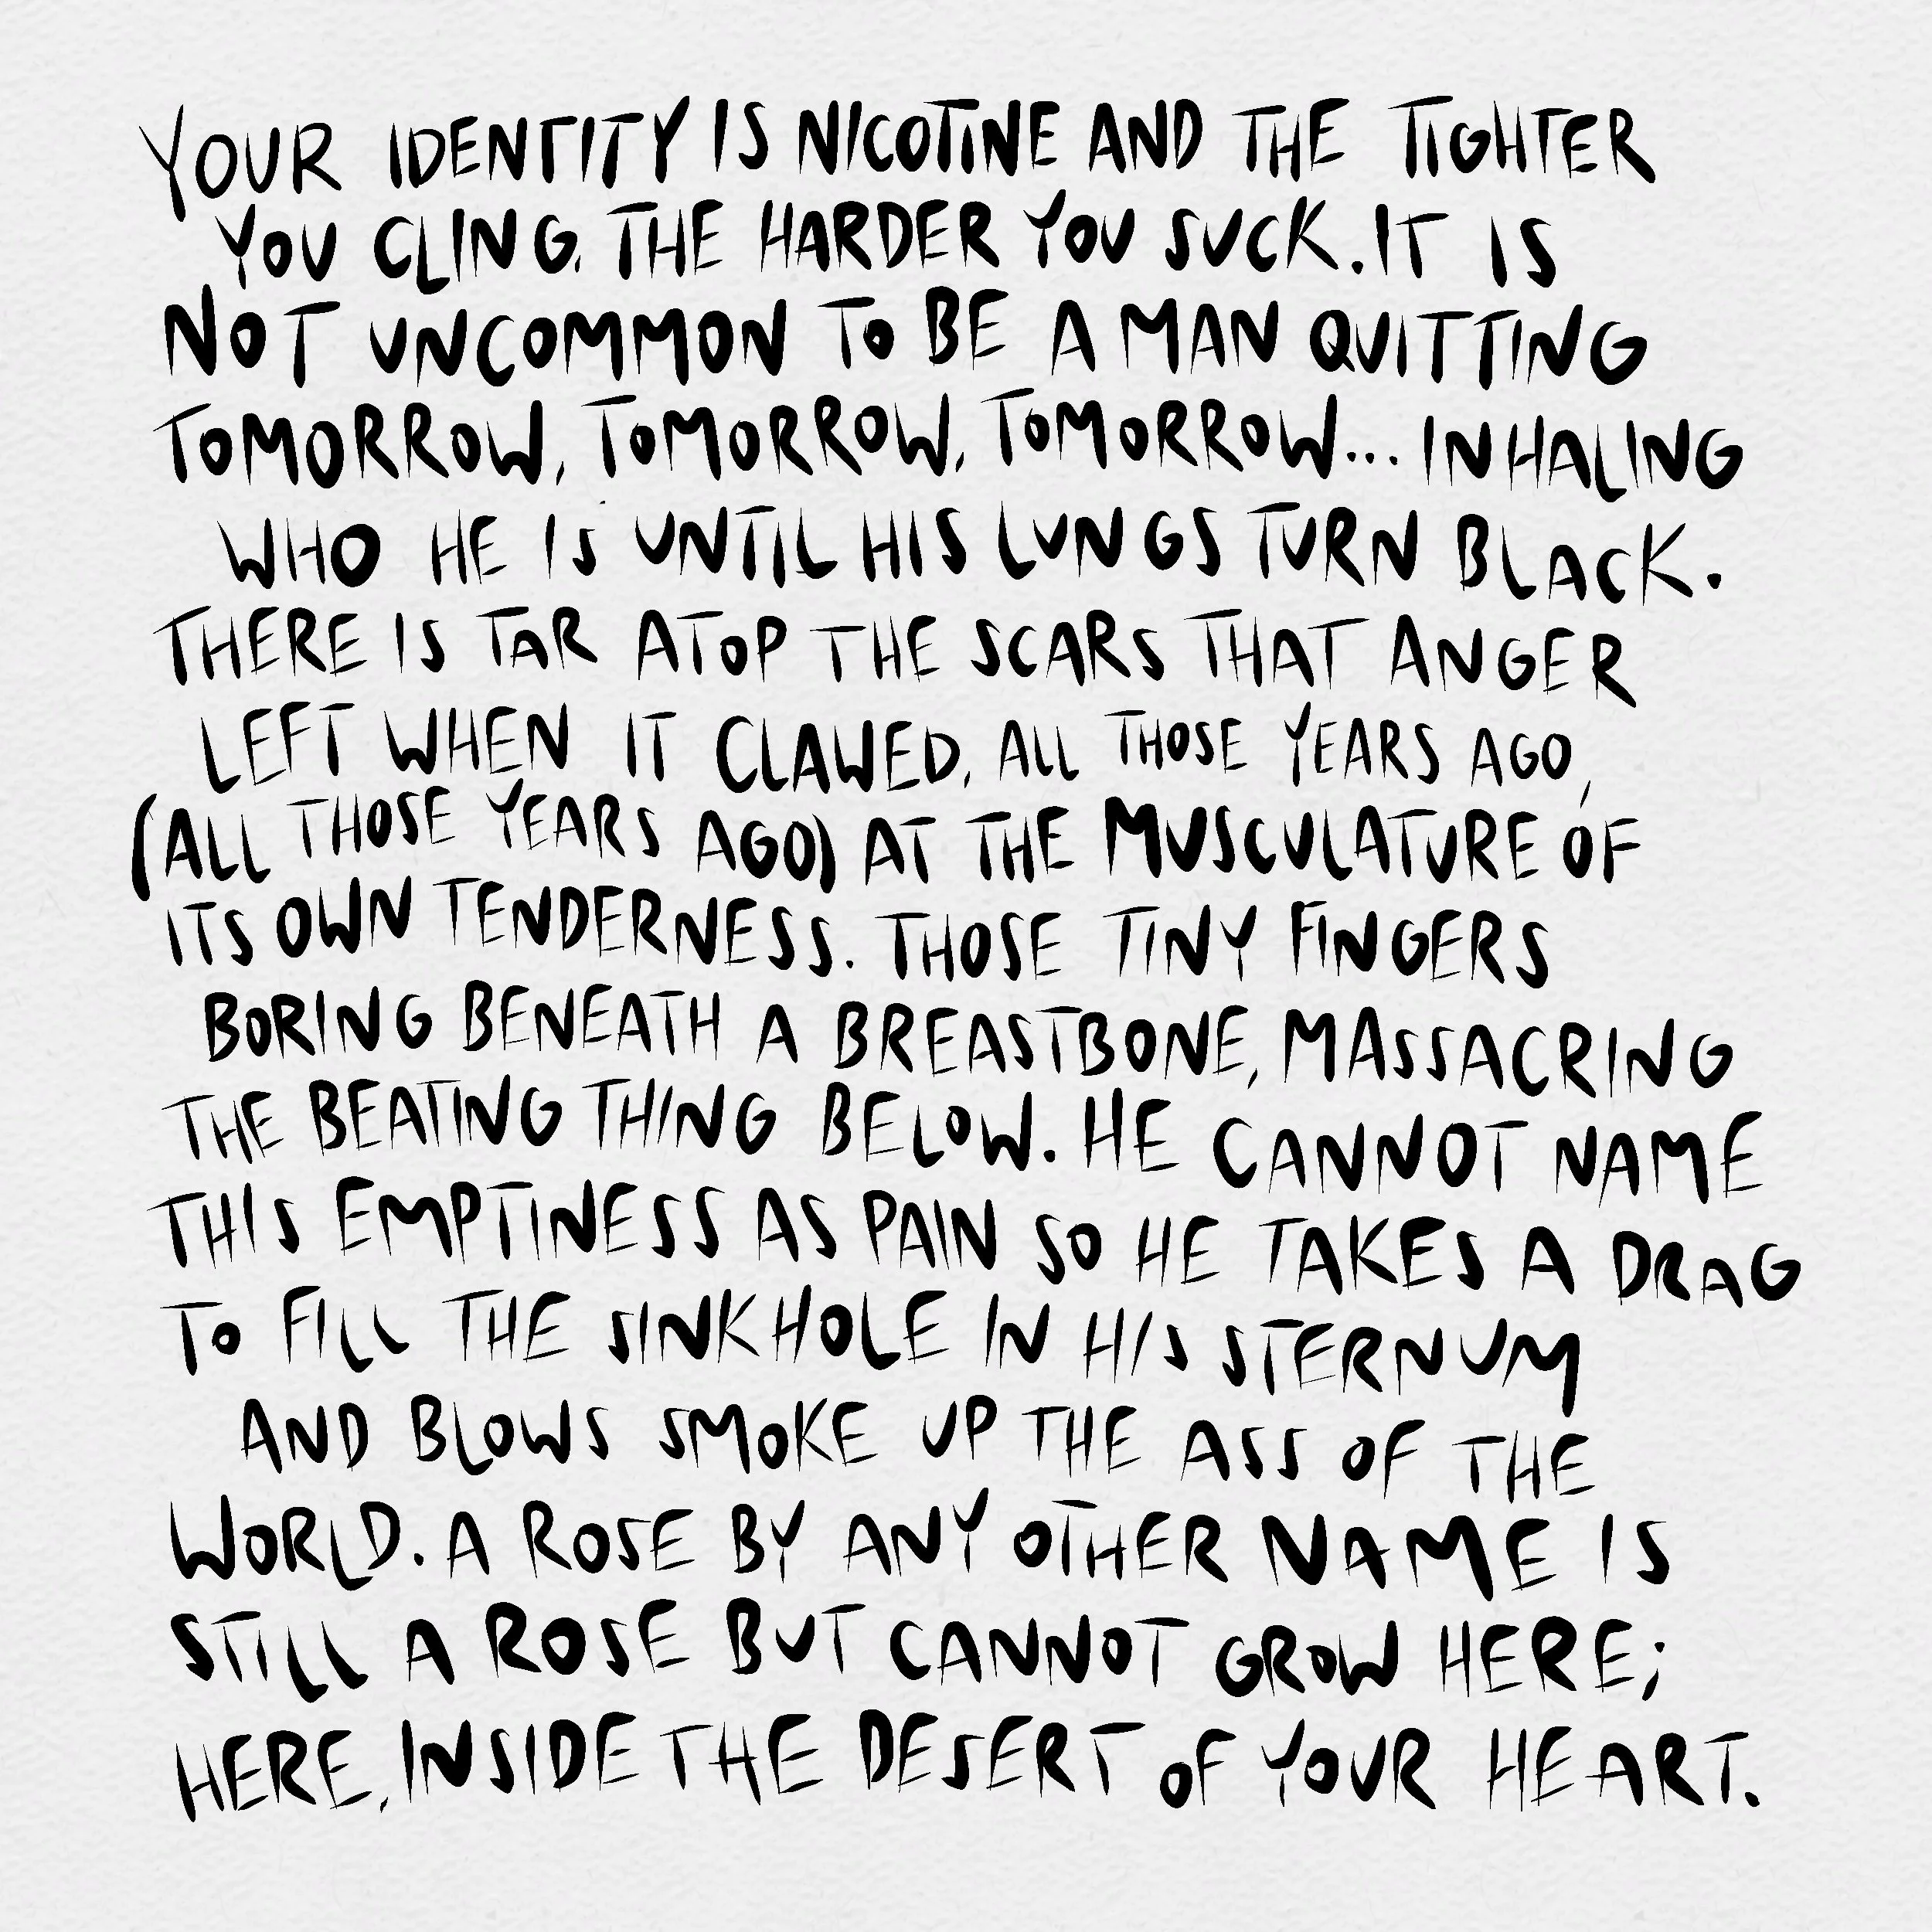 YOUR IDENTITY IS NICOTINE AND THE TIGHTER
YOU CLING, THE HARDER YOU SUCK. IT IS
NOT UNCOMMON TO BE A MAN QUITTING
TOMORROW, TOMORROW, TOMORROW... INHALING
WHO HE IS UNTIL HIS LUNGS TURN BLACK.
THERE IS TAR ATOP THE SCARS THAT ANGER
LEFT WHEN IT CLAWED, ALL THOSE YEARS AGO,
(ALL THOSE YEARS AGO) AT THE MUSCULATURE OF
ITS OWN TENDERNESS. THOSE TINY FINGERS
BORING BENEATH A BREASTBONE, MASSACRING
THE BEATING THING BELOW. HE CANNOT NAME
THIS EMPTINESS AS PAIN SO HE TAKES A DRAG
TO FILL THE SINKHOLE IN HIS STERNUM
AND BLOWS SMOKE UP THE ASS OF THE
WORLD. A ROSE BY ANY OTHER NAME IS
STILL A ROSE BUT CANNOT GROW HERE;
HERE, INSIDE THE DESERT OF YOUR HEART.